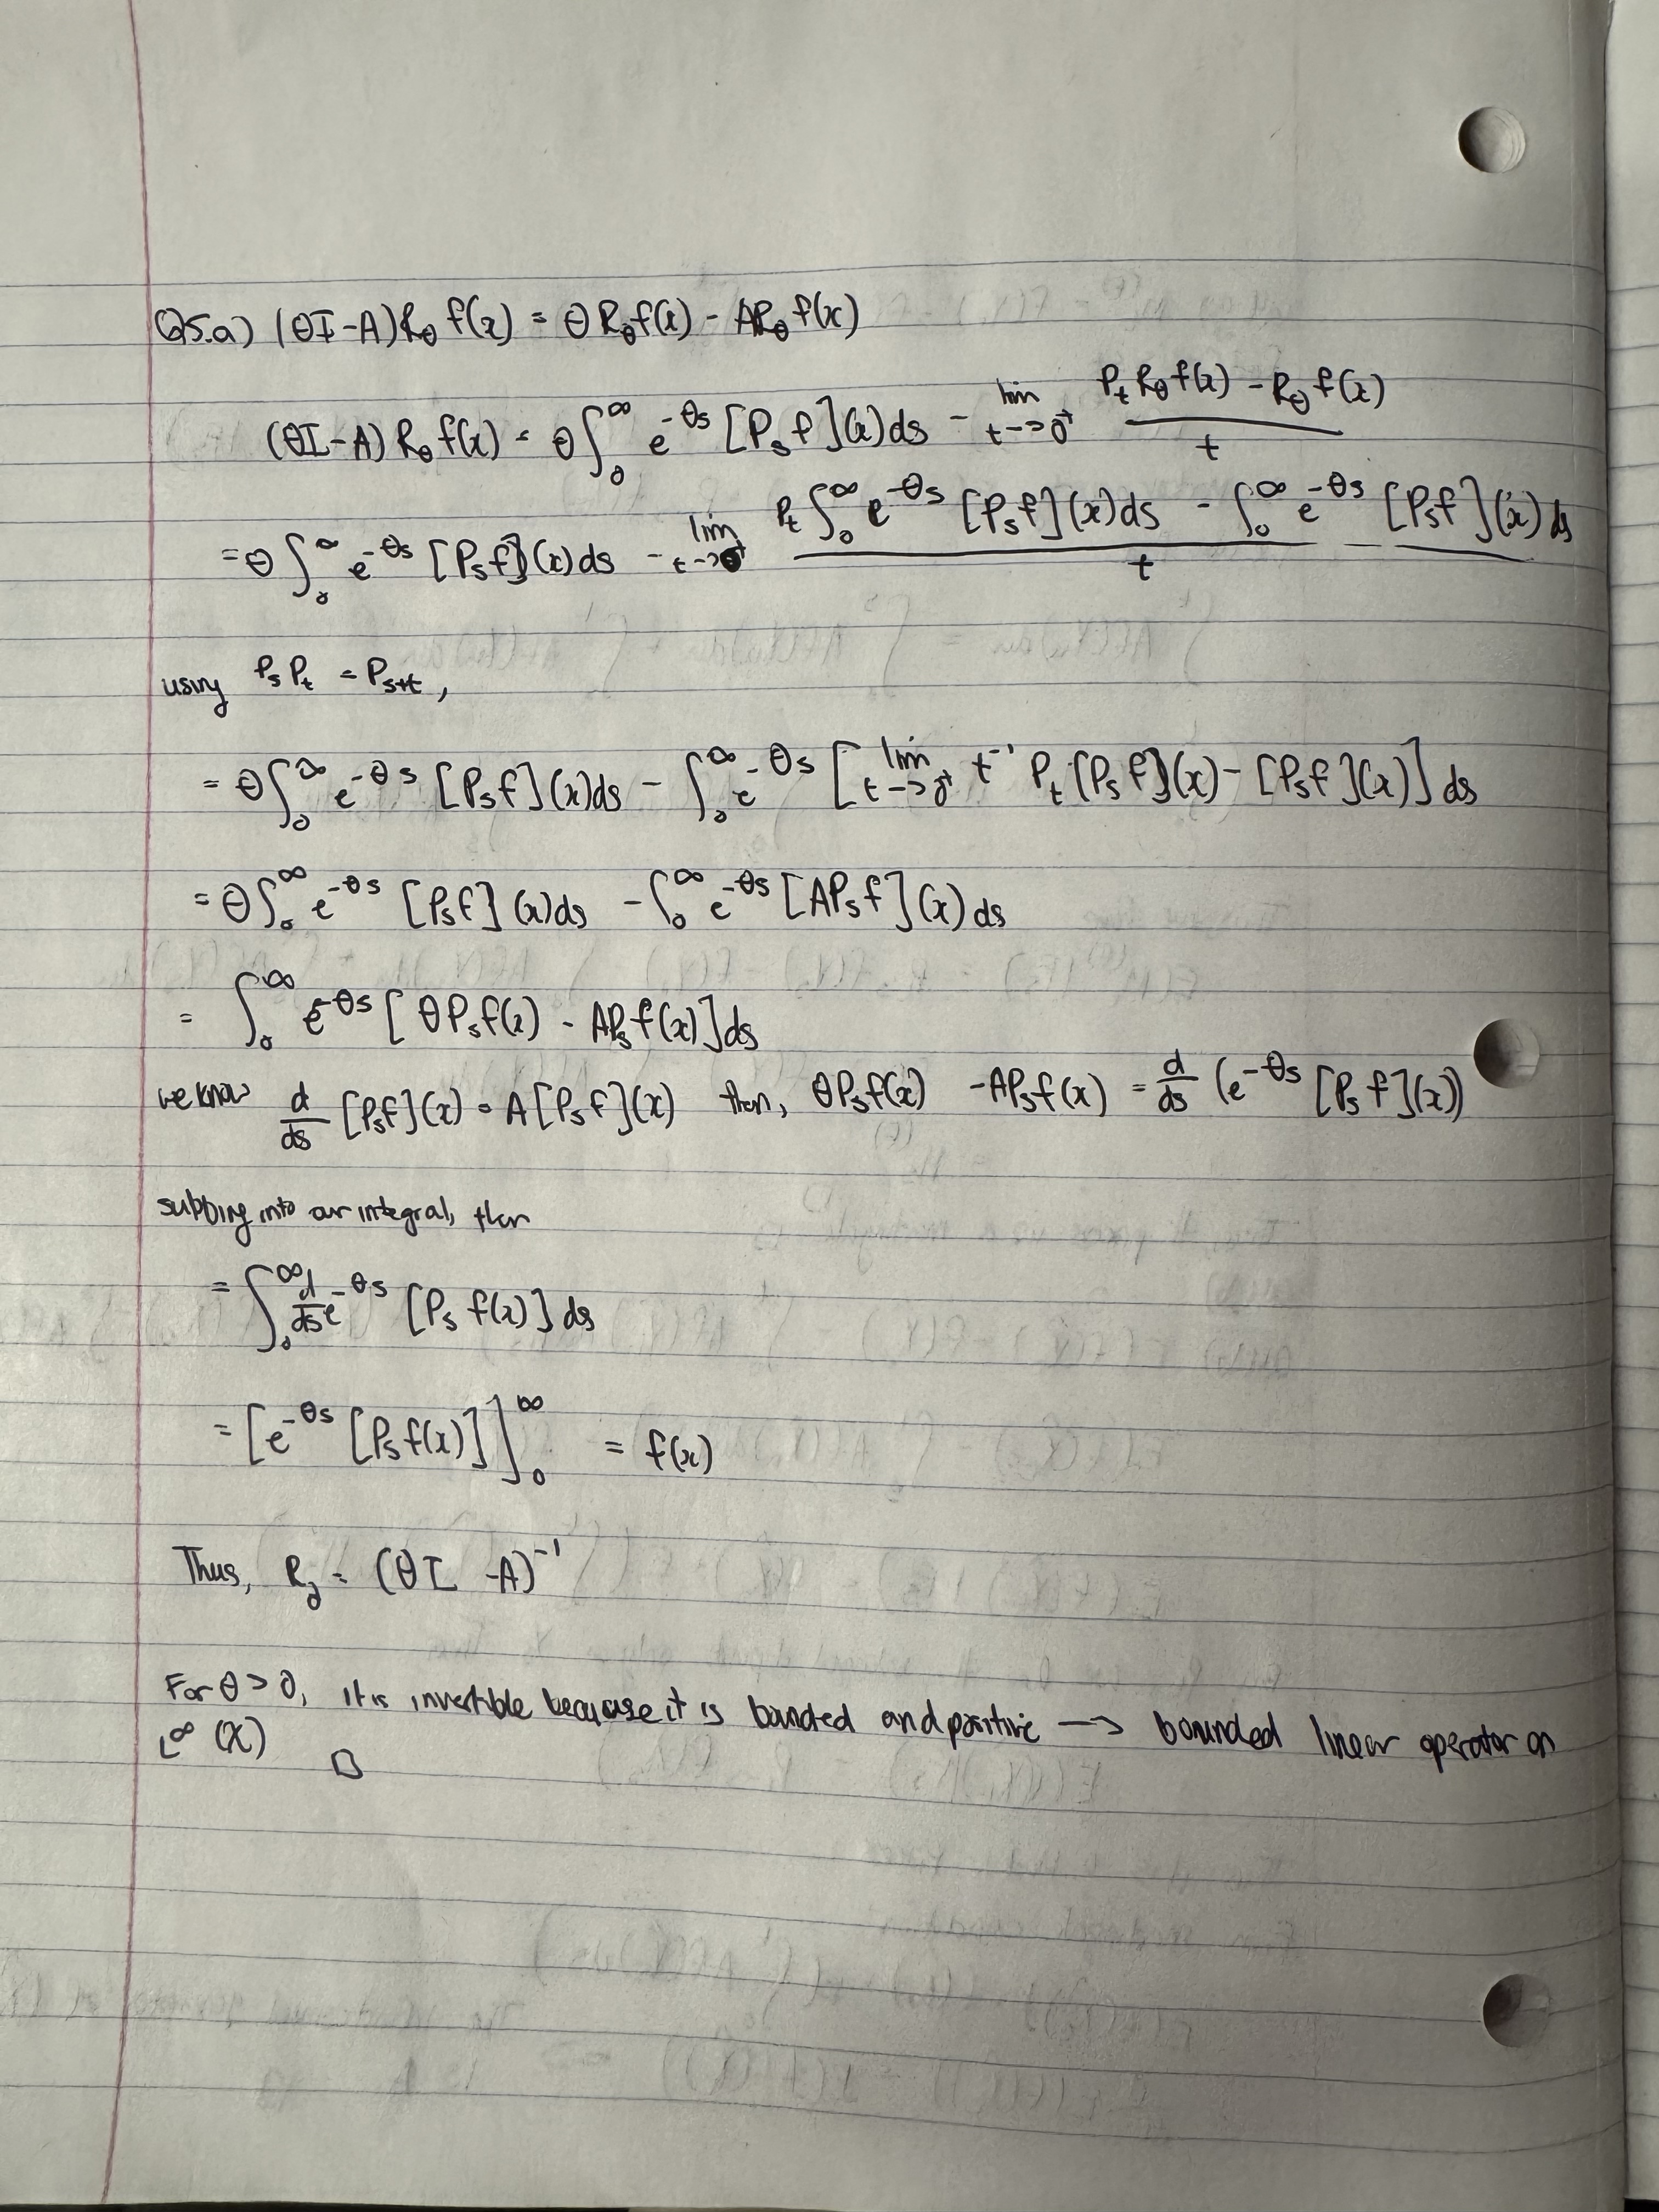 Q5.a) (θI-A)R_θ f(x) = θ R_θ f(x) - AR_θ f(x)
(θI-A) R_θ f(x) = θ∫_0^∞ e^{-θs} [P_s f](x)ds - lim_{t->0^+} (P_t R_θ f(x) - R_θ f(x))/t
= θ ∫_0^∞ e^{-θs} [P_s f](x)ds - lim_{t->0^+} (P_t ∫_0^∞ e^{-θs} [P_s f](x)ds - ∫_0^∞ e^{-θs} [P_s f](x)ds)/t
using P_s P_t = P_{s+t},
= θ∫_0^∞ e^{-θs} [P_s f](x)ds - ∫_0^∞ e^{-θs} [lim_{t->0^+} t^{-1} P_t [P_s f](x) - [P_s f](x)] ds
= θ∫_0^∞ e^{-θs} [P_s f](x)ds - ∫_0^∞ e^{-θs} [AP_s f](x) ds
= ∫_0^∞ e^{-θs} [θP_s f(x) - AP_s f(x)]ds
we know d/ds [P_s f](x) = A[P_s f](x) then, θP_s f(x) - AP_s f(x) = d/ds (e^{-θs} [P_s f](x))
subbing into our integral, then
= ∫_0^∞ d/ds e^{-θs} [P_s f(x)] ds
= [e^{-θs} [P_s f(x)]]_0^∞ = f(x)
Thus, R_θ = (θI - A)^{-1}
For θ > 0, it is invertible because it is bounded and positive —> bounded linear operator on
L^∞ (X) □